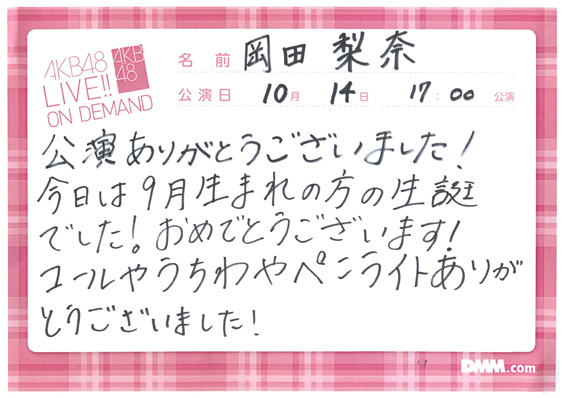 AKB48
LIVE!!
ON DEMAND
AKB
48
名前 岡田梨奈
公演日 10月 14日 17:00 公演
公演ありがとうございました!
今日は9月生まれの方の生誕
でした!おめでとうございます!
コールやうちわやペンライトありが
とうございました!
DMM.com